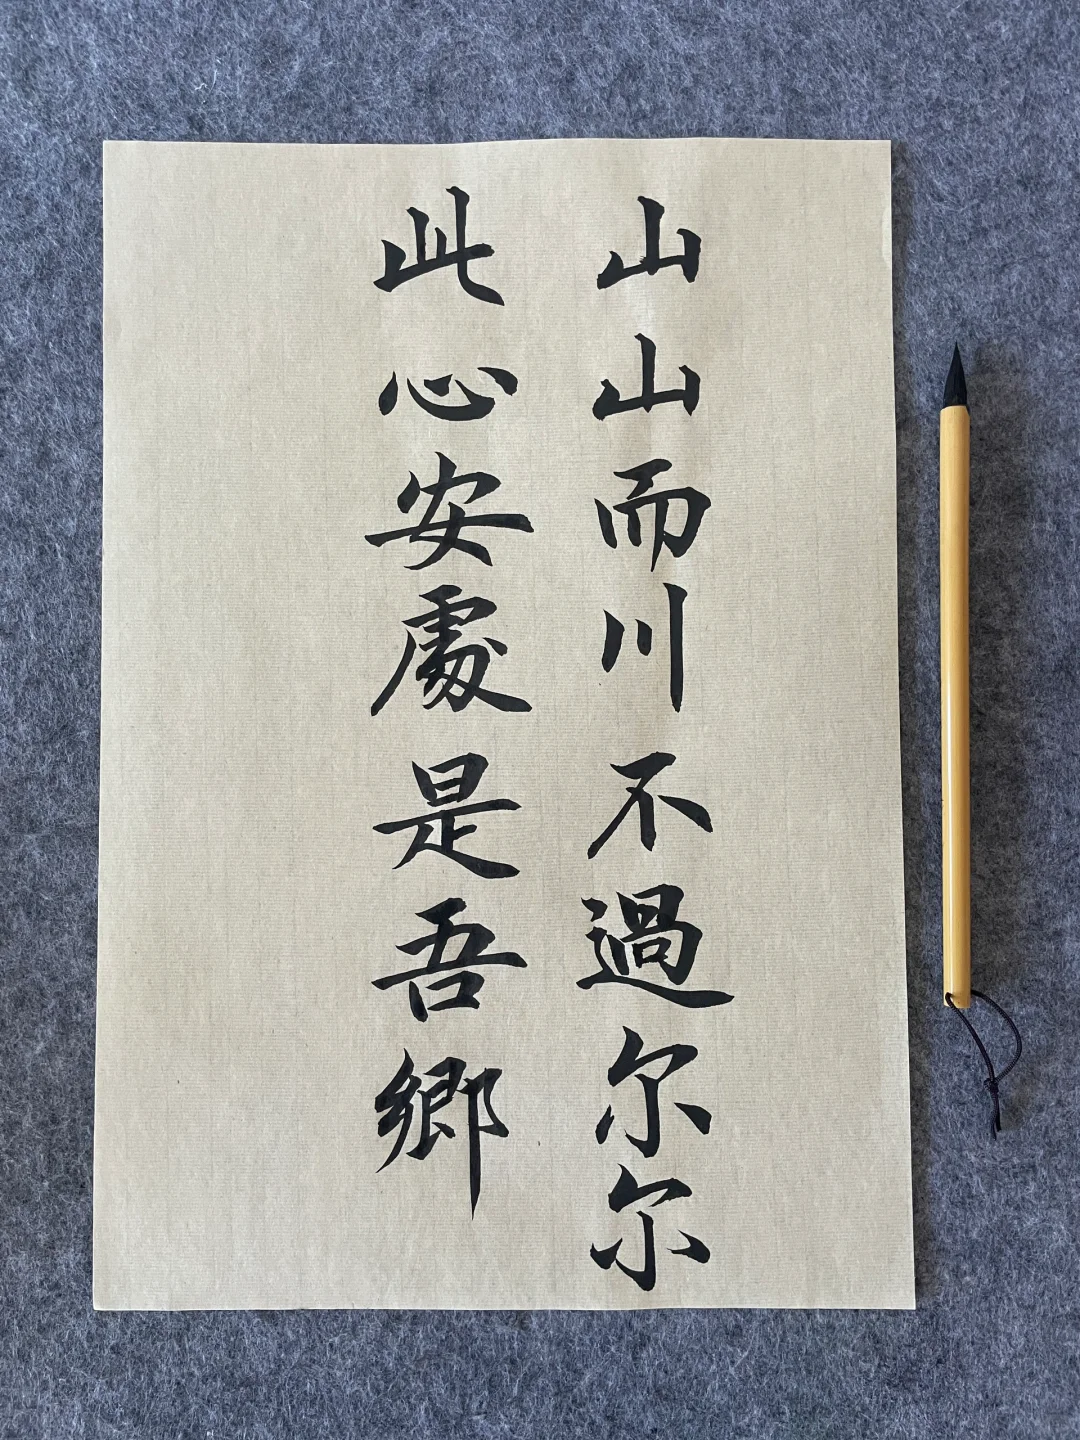 山山而川不過尔尔
此心安處是吾鄉